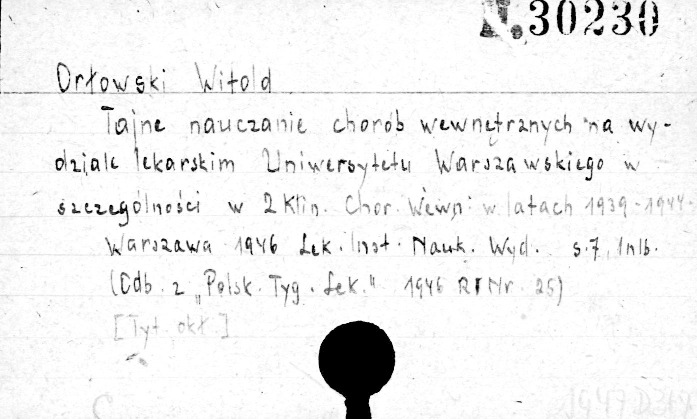 N. 30230
Orłowski Witold
Tajne nauczanie chorób wewnętrznych na wy-
dziale lekarskim Uniwersytetu Warszawskiego w
szczególności w 2 Klin. Chor. Wewn. w latach 1939-1944.
Warszawa 1946 Lek. Inst. Nauk. Wyd. s. 7, 1nlb.
(Odb. z „Polsk. Tyg. Lek." 1946 R I Nr. 25)
[Tyt. okł.]
1947 D